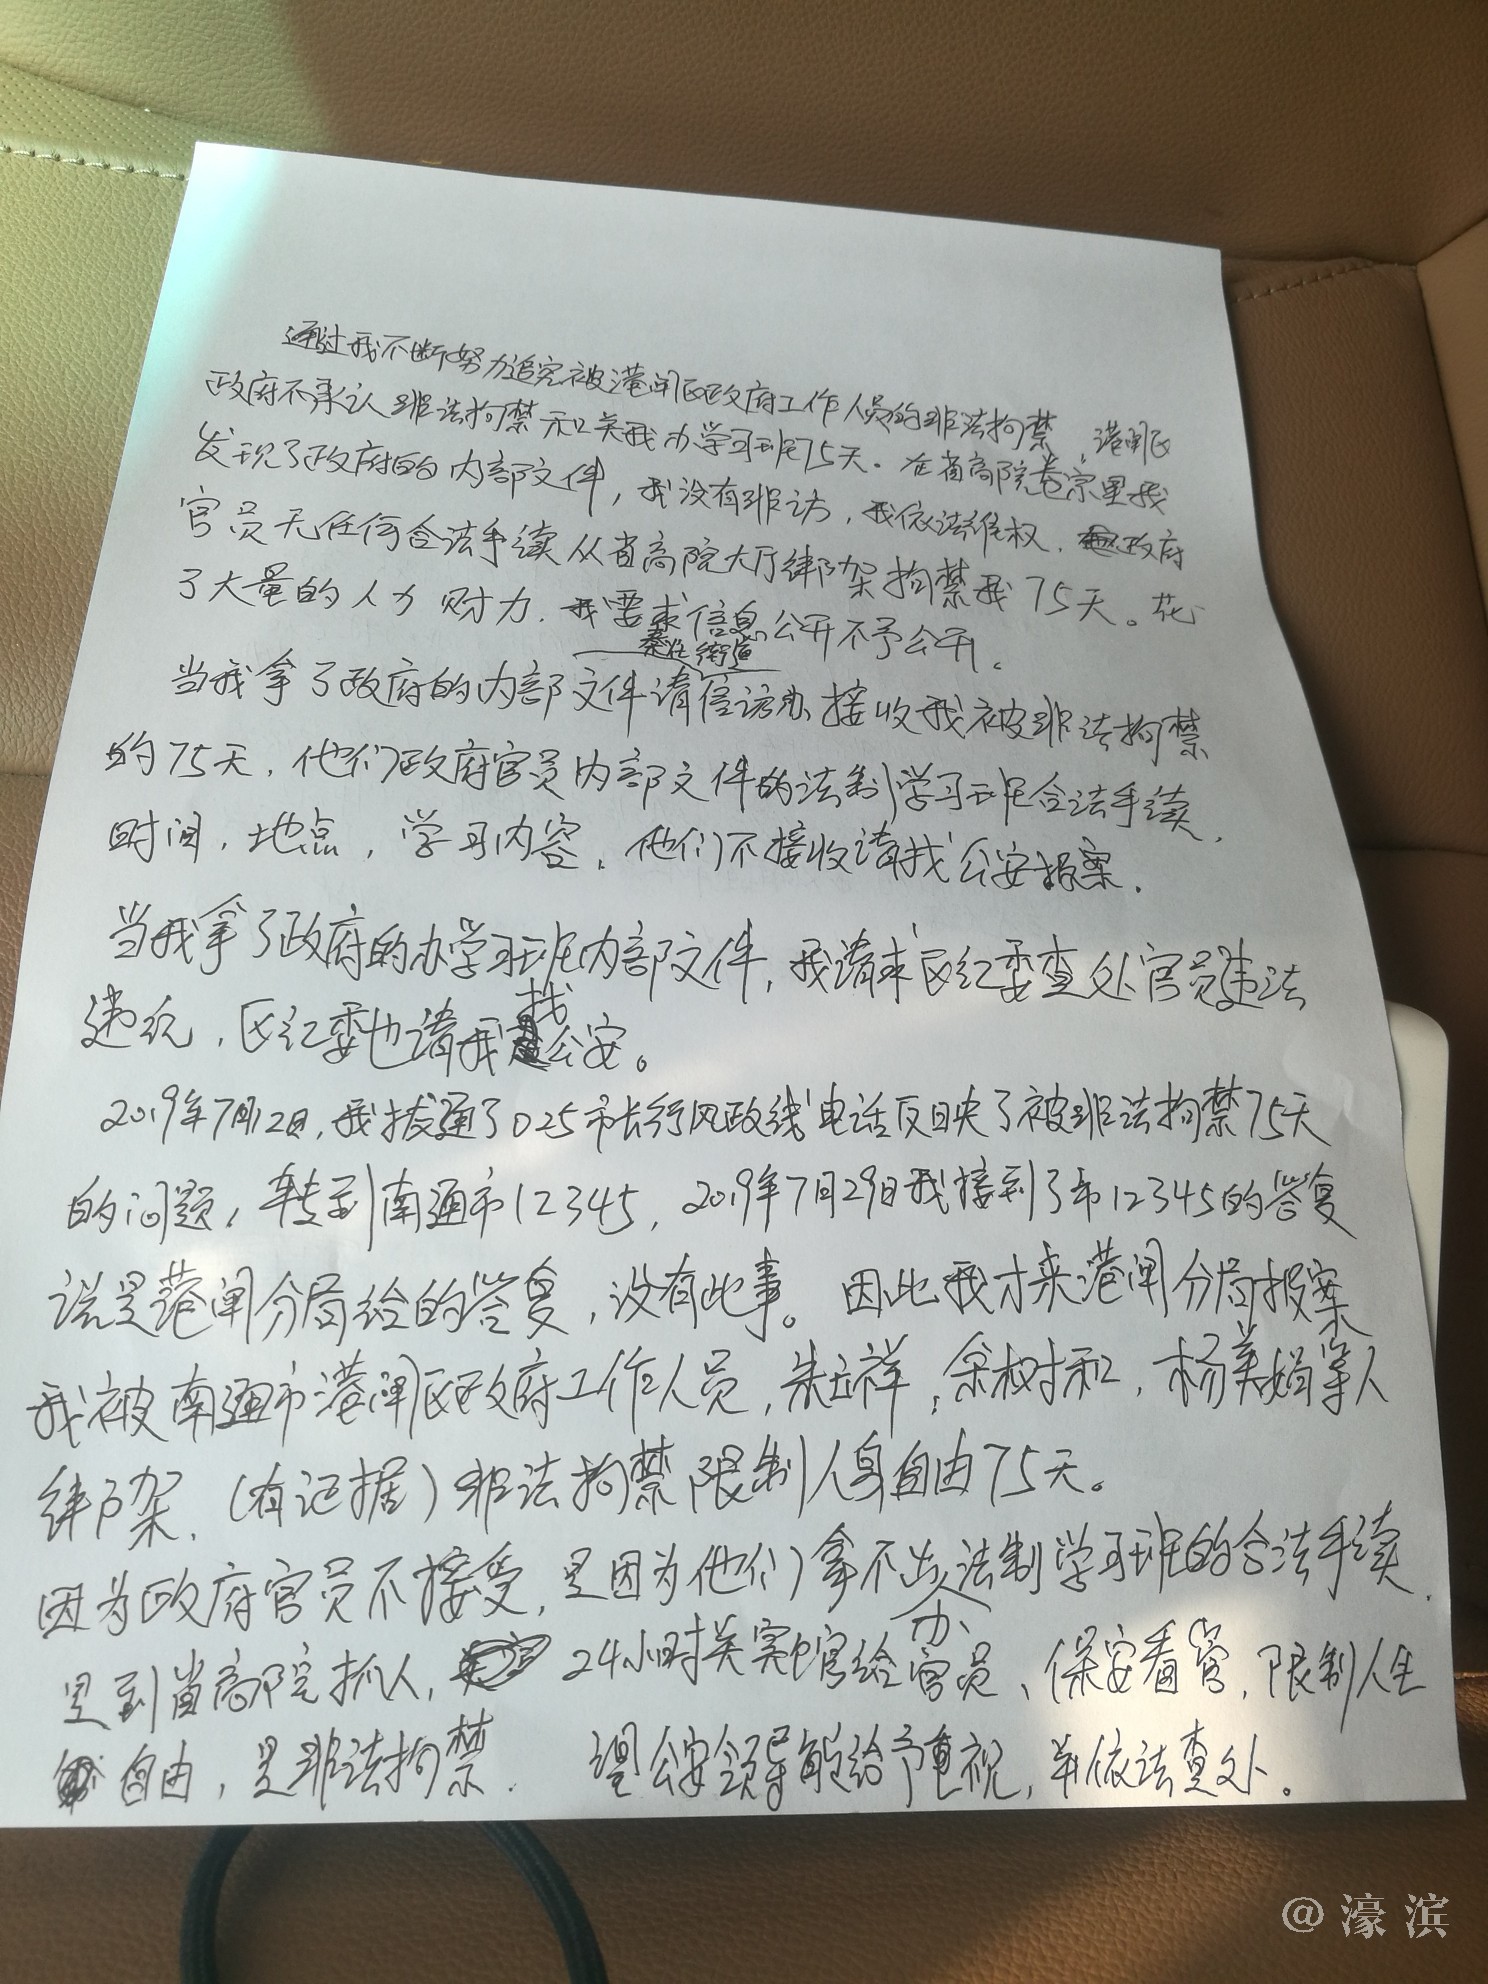 通过我不断努力追究被港闸区政府工作人员的非法拘禁，港闸区
政府不承认非法拘禁和关我办学习班75天。在省高院卷宗里我
发现了政府的内部文件，我没有非访，我依法维权，政府
官员无任何合法手续从省高院大厅绑架拘禁我75天。花
了大量的人力财力，我要求信息公开不予公开。
秦灶街道
当我拿了政府的内部文件请信访办接收我被非法拘禁
的75天，他们政府官员内部文件的法制学习班合法手续，
时间，地点，学习内容，他们不接收请我公安报案。
当我拿了政府的办学习班内部文件，我请求区纪委查处官员违法
违纪，区纪委也请我找公安。
2019年7月12日，我拔通了025市长行风政线电话反映了被非法拘禁75天
的问题，转到南通市12345，2019年7月29日我接到了市12345的答复
说是港闸分局给的答复，没有此事。因此我才来港闸分局报案
我被南通市港闸区政府工作人员，朱玉祥，余树和，杨美娟等人
绑架，（有证据）非法拘禁限制人身自由75天。
因为政府官员不接受，是因为他们拿不出法制学习班的合法手续，
办
是到省高院抓人，24小时关宾馆给官员、保安看管，限制人生
自由，是非法拘禁．望公安领导能给予重视，并依法查处。
@濠滨